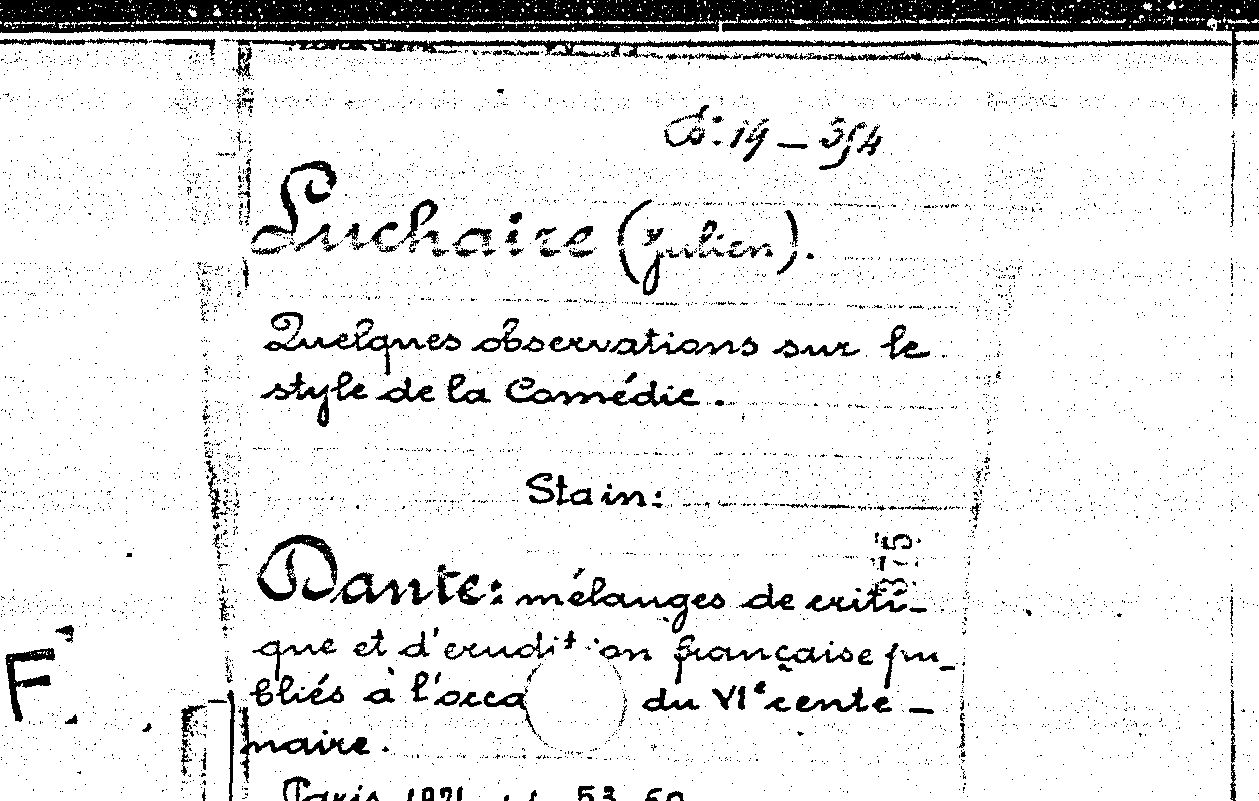 19-354
Luchaire (Julien).
Quelques observations sur le
style de la Comédie.
Stain:
Dante: mélanges de criti-
que et d'erudit on française pu-
bliés à l'occa du VIe cente-
naire.
F
Paris 1921 53 60